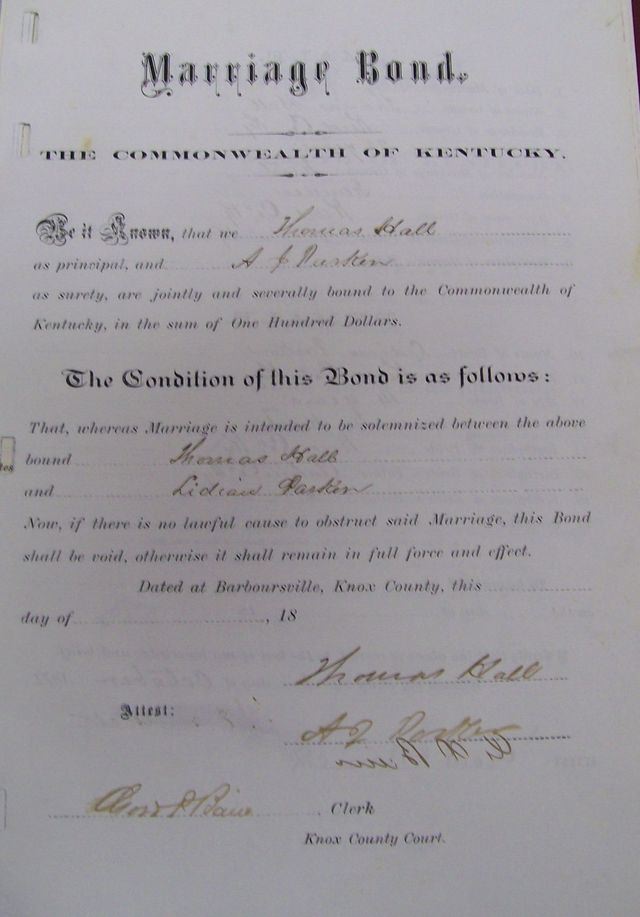 Marriage Bond.
THE COMMONWEALTH OF KENTUCKY.
Be it Known, that we Thomas Hall
as principal, and A J
as surety, are jointly and severally bound to the Commonwealth of
Kentucky, in the sum of One Hundred Dollars.
The Condition of this Bond is as follows:
That, whereas Marriage is intended to be solemnized between the above
bound Thomas Hall
and Lidian
Now, if there is no lawful cause to obstruct said Marriage, this Bond
shall be void, otherwise it shall remain in full force and effect.
Dated at Barboursville, Knox County, this
day of , 18
Thomas Hall
Attest:
A J
Clerk
Knox County Court.